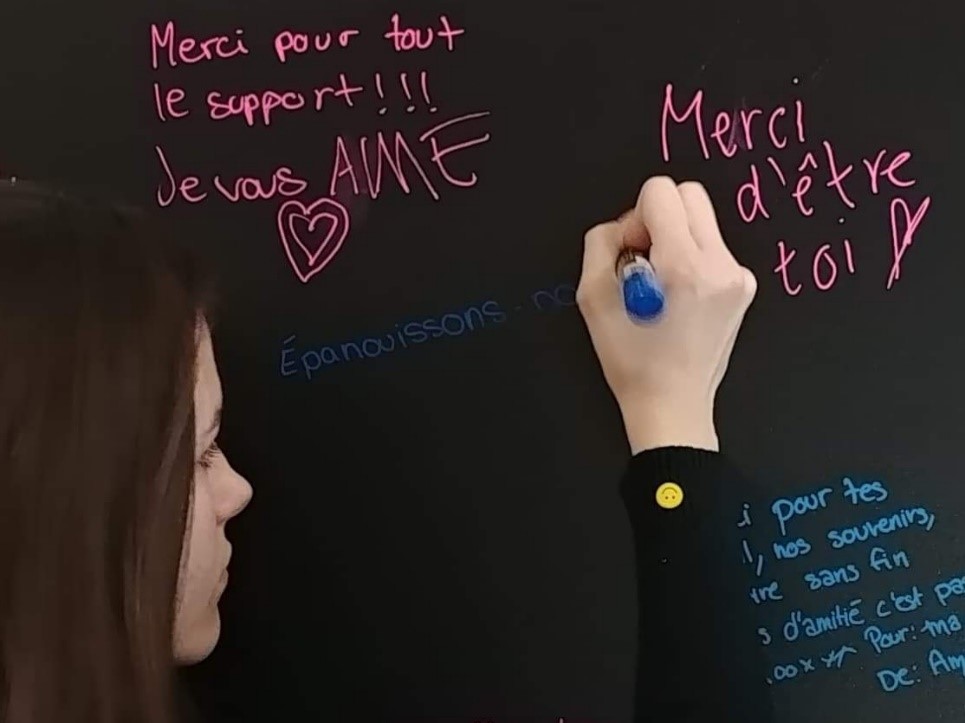 Merci pour tout
le support!!!
Je vous AIME
Merci
d'être
toi
Épanouissons-no
i pour tes
, nos souvenirs,
ire sans fin
s d'amitié c'est pas
Pour: ma
De: Am